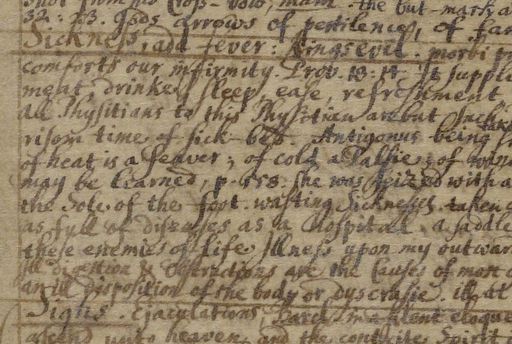 shot from his Cross-bow, man. the but-mark a
32: 23. Gods arrows of pestilence, of fam
Sickness, add fever: Kings evil. morbi
comforts our infirmity. Prov. 18: 14. It supple
meat, drinke, sleep, ease, refreshment
All Physitians to this Physitian are but
risom time of sick-bed. Antigonus being
of heat is a feaver; of cold a Palsie; of
may be learned, p. 178. she was seized with a
the sole of the foot. wasting Sicknesses. taken
as full of diseases as a Hospital, a saddle
these enemies of life. Illness upon my outwar
Ill digestion & obstructions are the causes of most
an ill disposition of the body or dyscrasie. ill at
Sighs. Ejaculations, silent eloque
ascend unto heaven, and the contrite Spirit